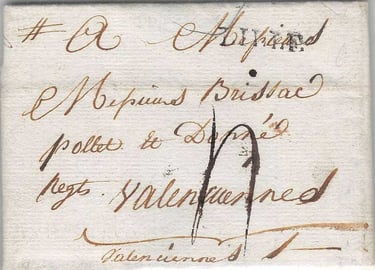 # A Messieurs
LILLE
Messieurs Brissac
pollet et Dupré
Negts. Valenciennes
Valenciennes